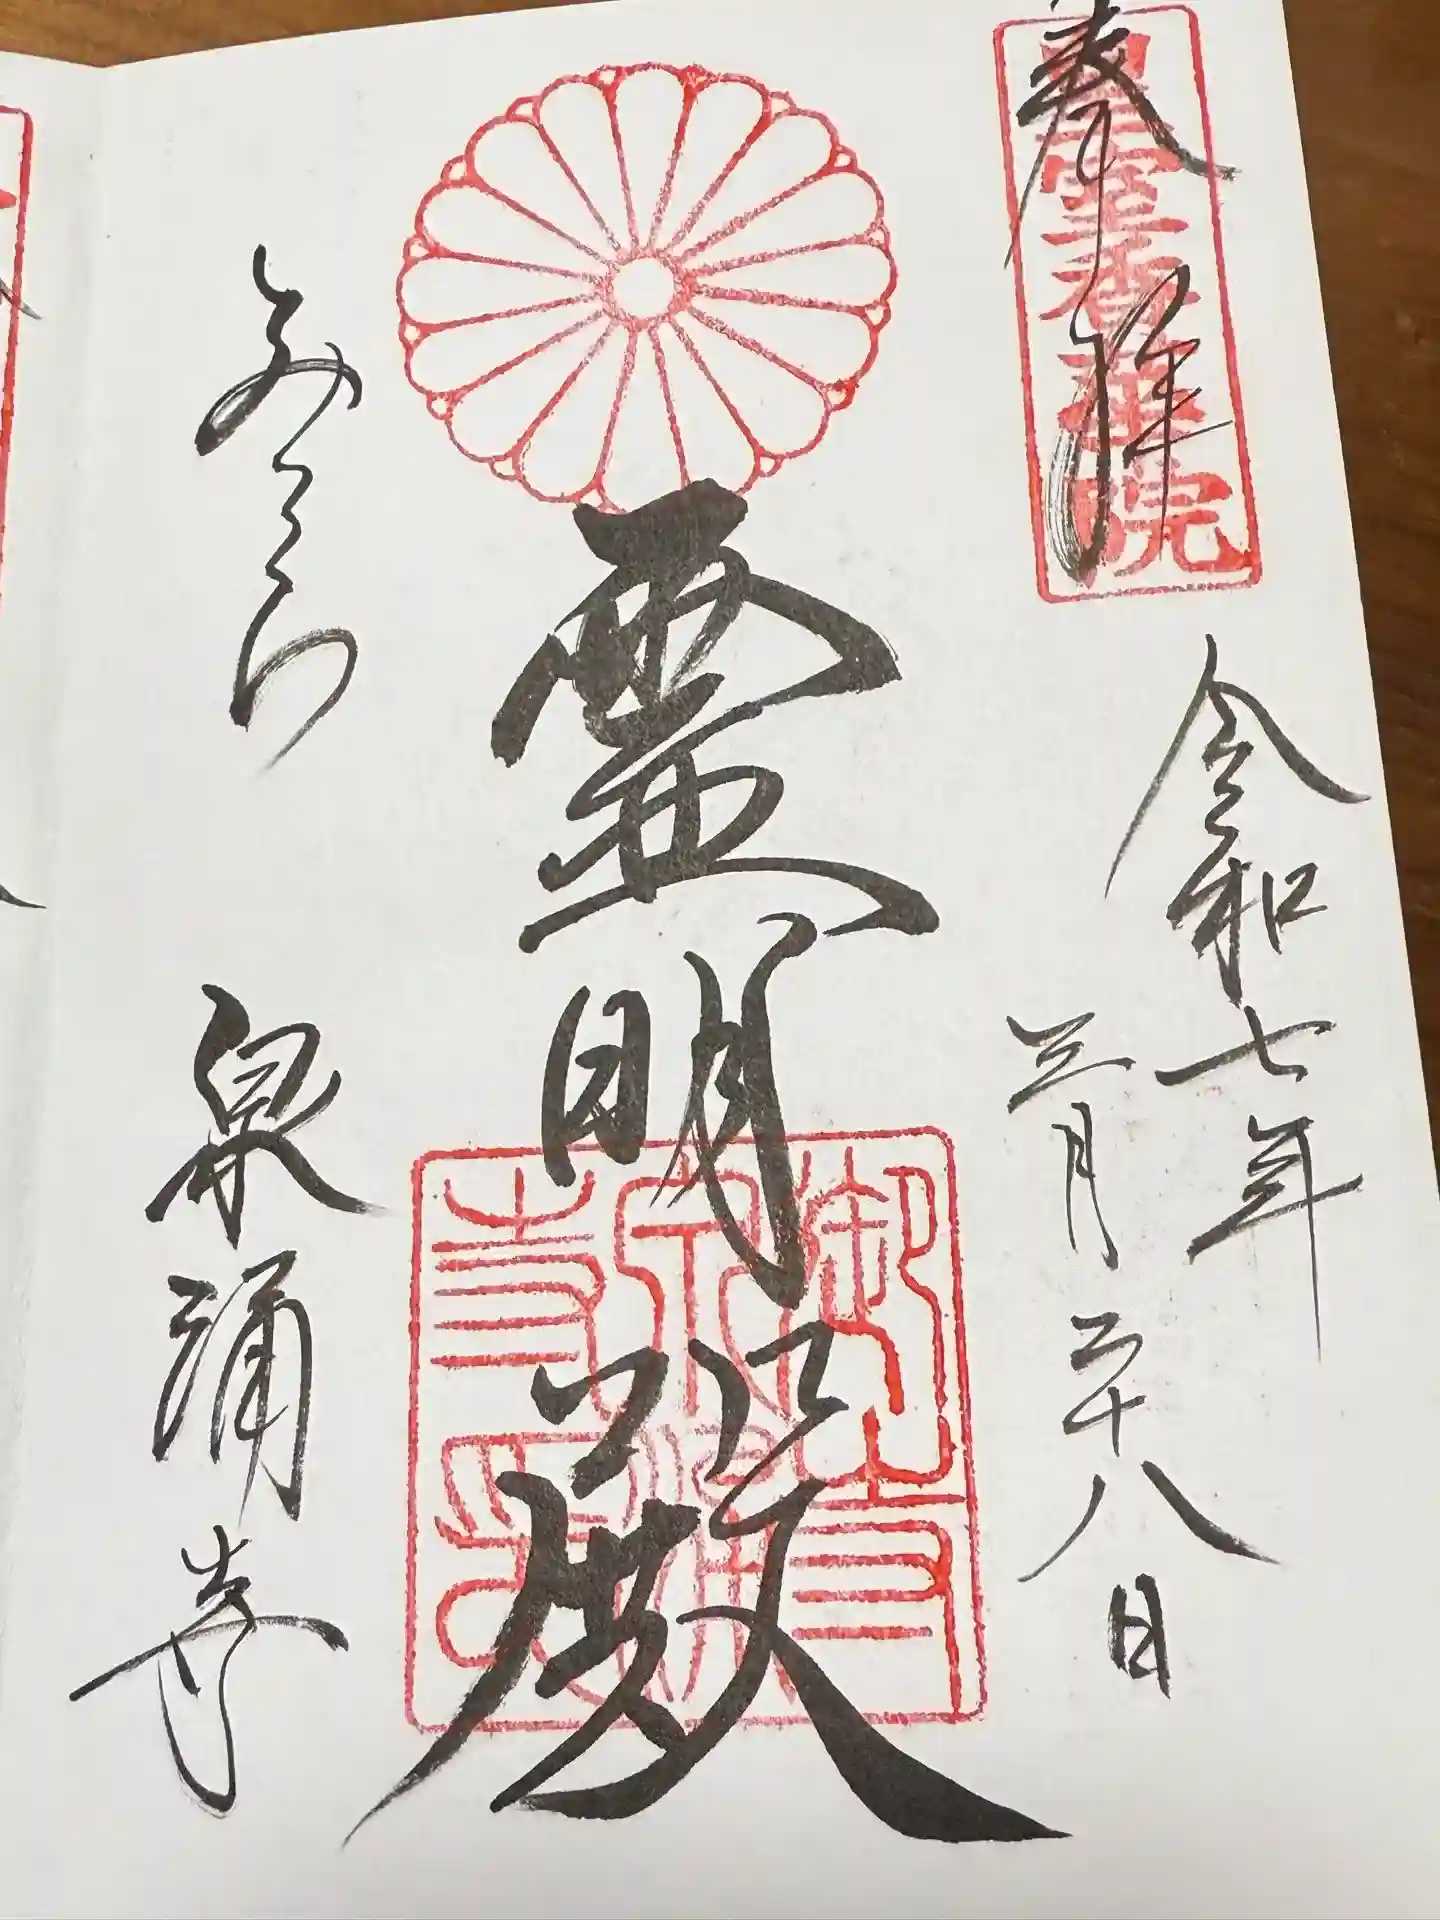 奉拝
皇室香華院
令和七年
三月二十八日
霊明殿
御寺泉涌寺
みてら
泉涌寺